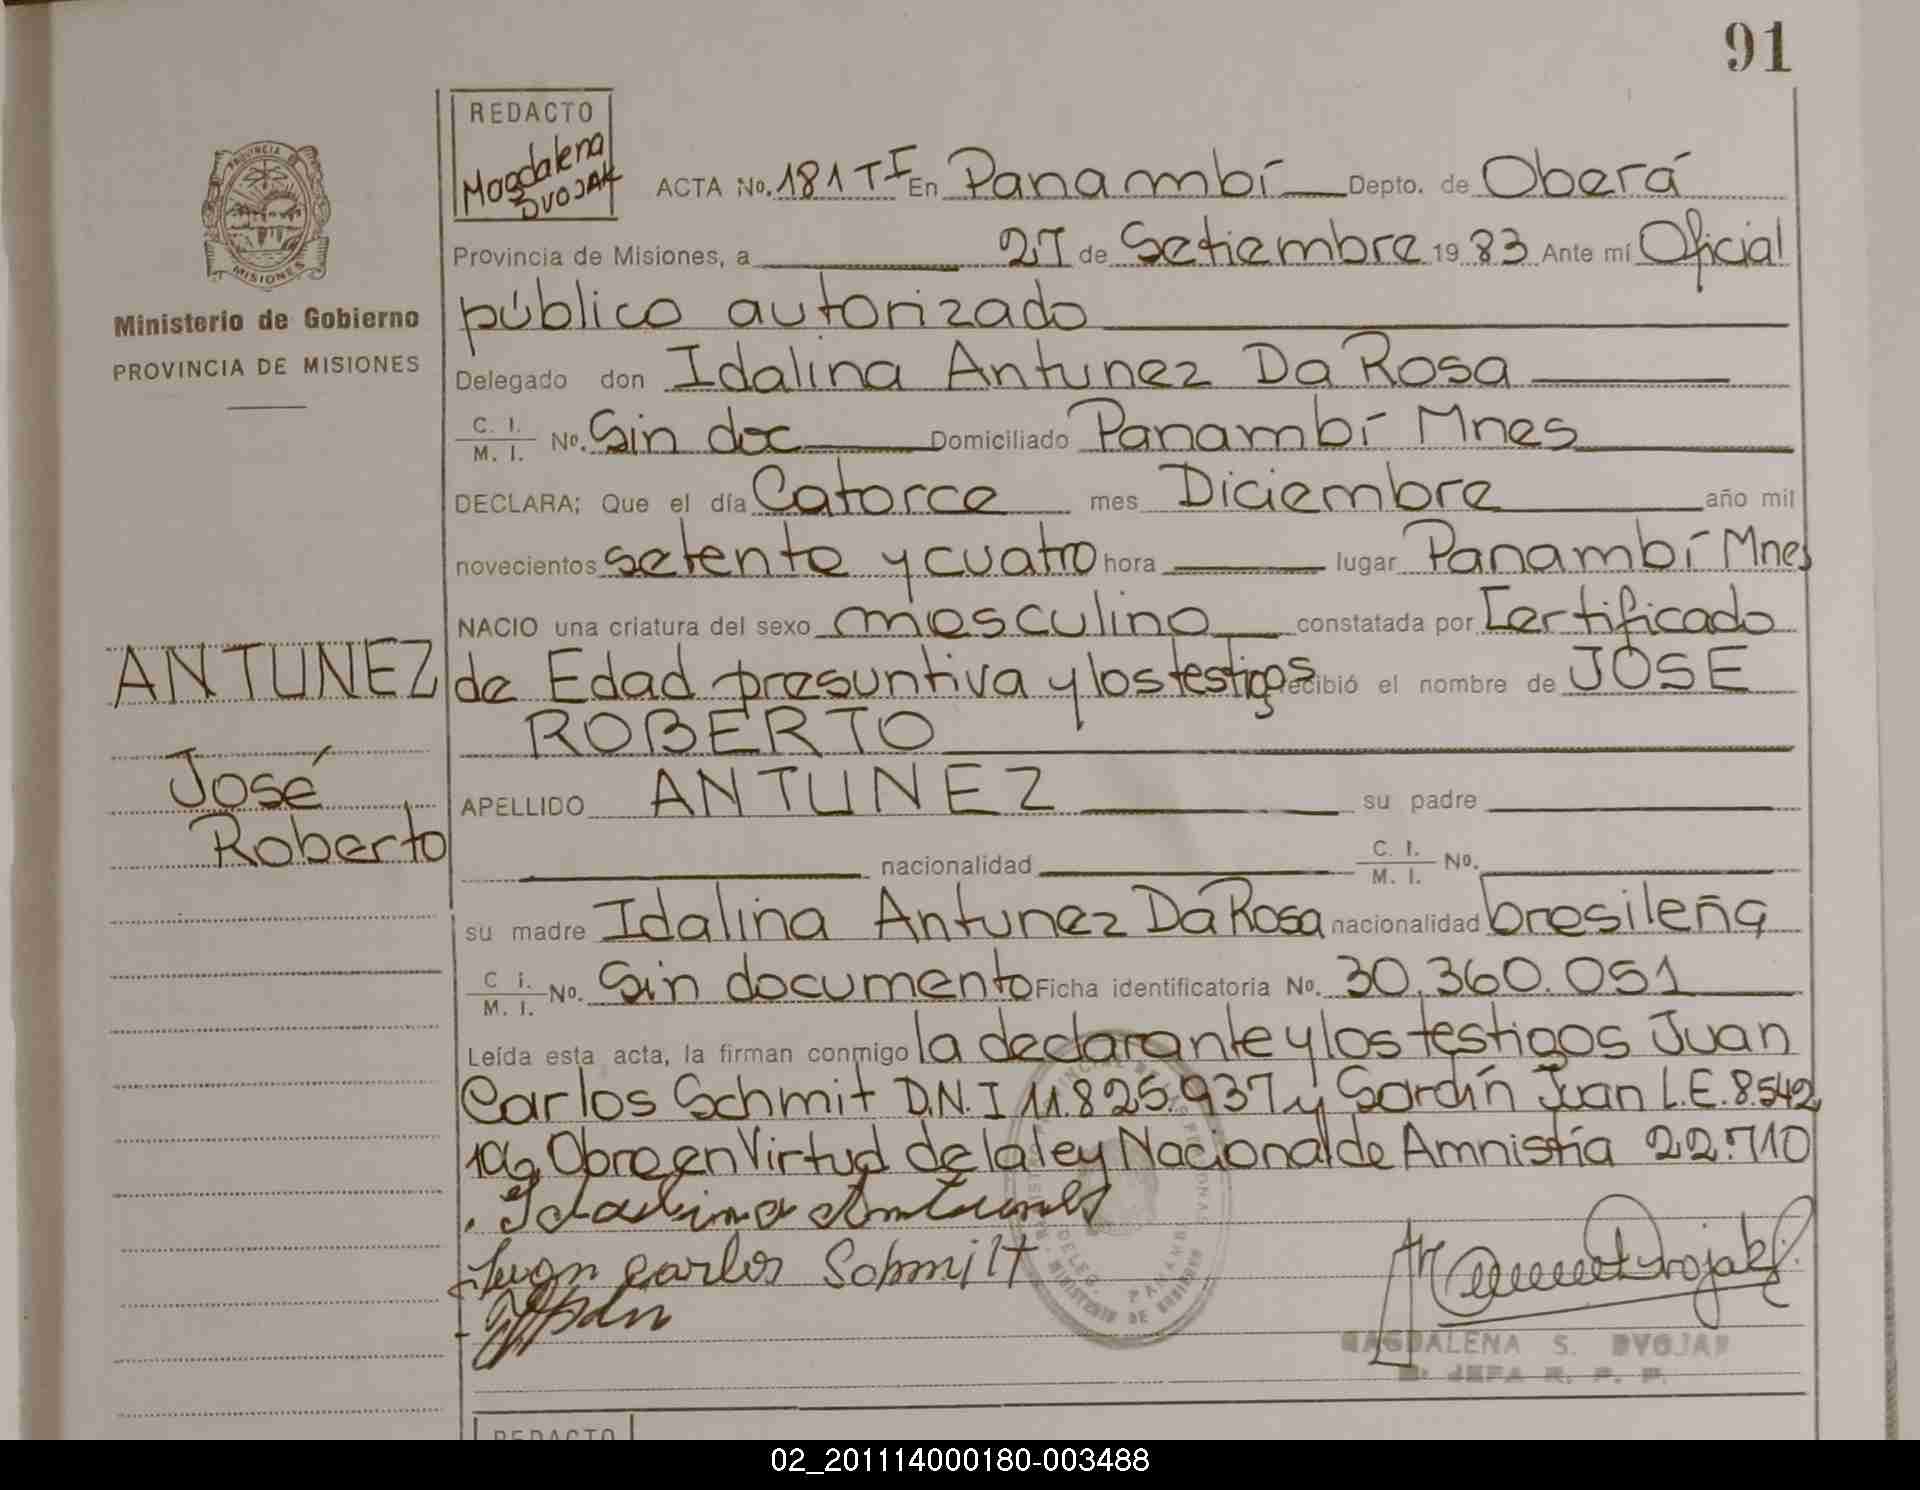 91
REDACTO
Magdalena
DVOJAK
PROVINCIA DE
MISIONES
Ministerio de Gobierno
PROVINCIA DE MISIONES
ACTA No. 181 T I En Panambí Depto. de Oberá
Provincia de Misiones, a 27 de Setiembre 19 83 Ante mí Oficial
público autorizado
Delegado don Idalina Antunez Da Rosa
C. I. / M. I. No. Sin doc Domiciliado Panambí Mnes
DECLARA; Que el día Catorce mes Diciembre año mil
novecientos setenta y cuatro hora lugar Panambí Mnes
NACIO una criatura del sexo masculino constatada por Certificado
ANTUNEZ de Edad presuntiva y los testigos recibió el nombre de JOSE
ROBERTO
José
APELLIDO ANTUNEZ su padre
Roberto
nacionalidad C. I. / M. I. No.
su madre Idalina Antunez Da Rosa nacionalidad brasileña
C. I. / M. I. No. Sin documento Ficha identificatoria No. 30.360.051
Leída esta acta, la firman conmigo la declarante y los testigos Juan
Carlos Schmit D.N.I 11.825.937 y Sardín Juan L.E. 8.542
Obra en Virtud de la ley Nacional de Amnistía 22.710
Idalina Antunes
Juan carlos Schmilt
MAGDALENA S. DVOJAK
JEFA R. P. P.
REDACTO
02_201114000180-003488